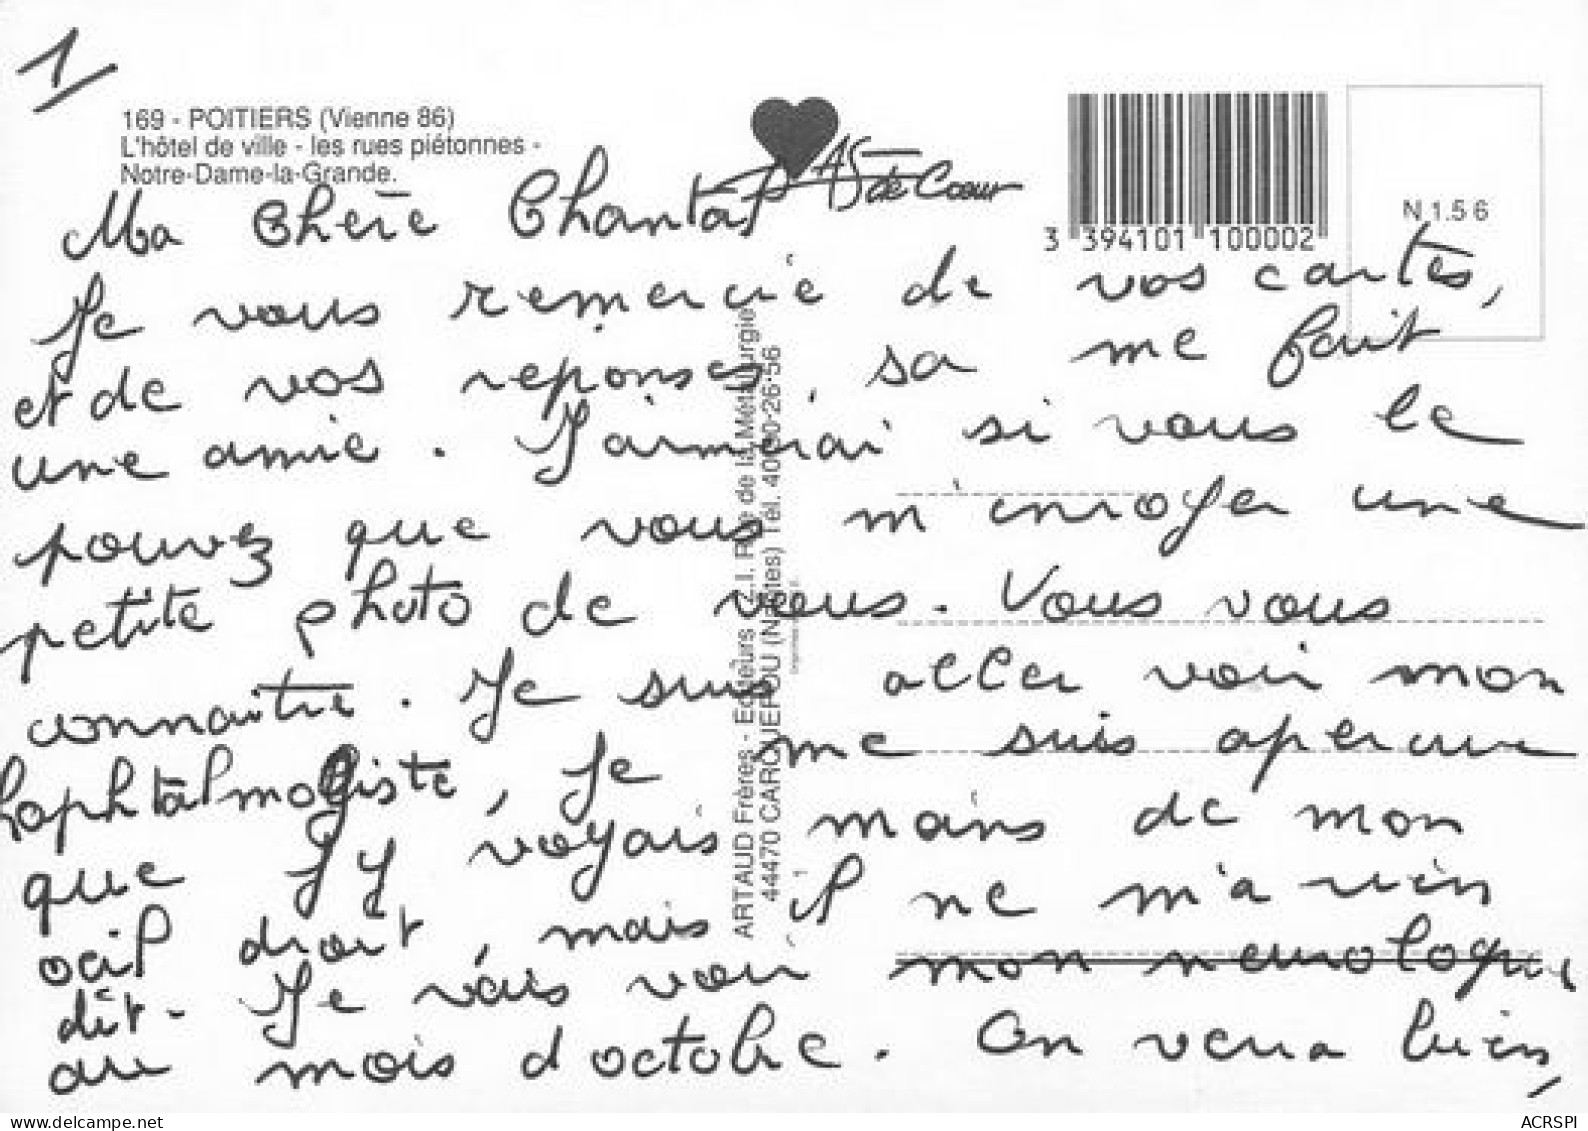 1
169 - POITIERS (Vienne 86)
L'hôtel de ville - les rues piétonnes -
Notre-Dame-la-Grande.
AS de Cœur
3 394101 100002
N 1.56
Ma Chère Chantal
Je vous remercie de vos cartes,
et de vos reponses, sa me fait
une amie. J'aimerai si vous le
pouvez que vous m'envoyer une
petite photo de vous. Vous vous
connaitre. Je suis aller voir mon
hophtalmologiste, Je me suis apercue
que J'y voyais moins de mon
oeil droit, mais il ne m'a rien
dit - Je vais voir mon neurologue
au mois d'octobre. On verra bien,
ARTAUD Frères - Editeurs - Z.I. Rue de la Métallurgie
44470 CARQUEFOU (Nantes) Tél. 40-30-26-56
ACRSPI